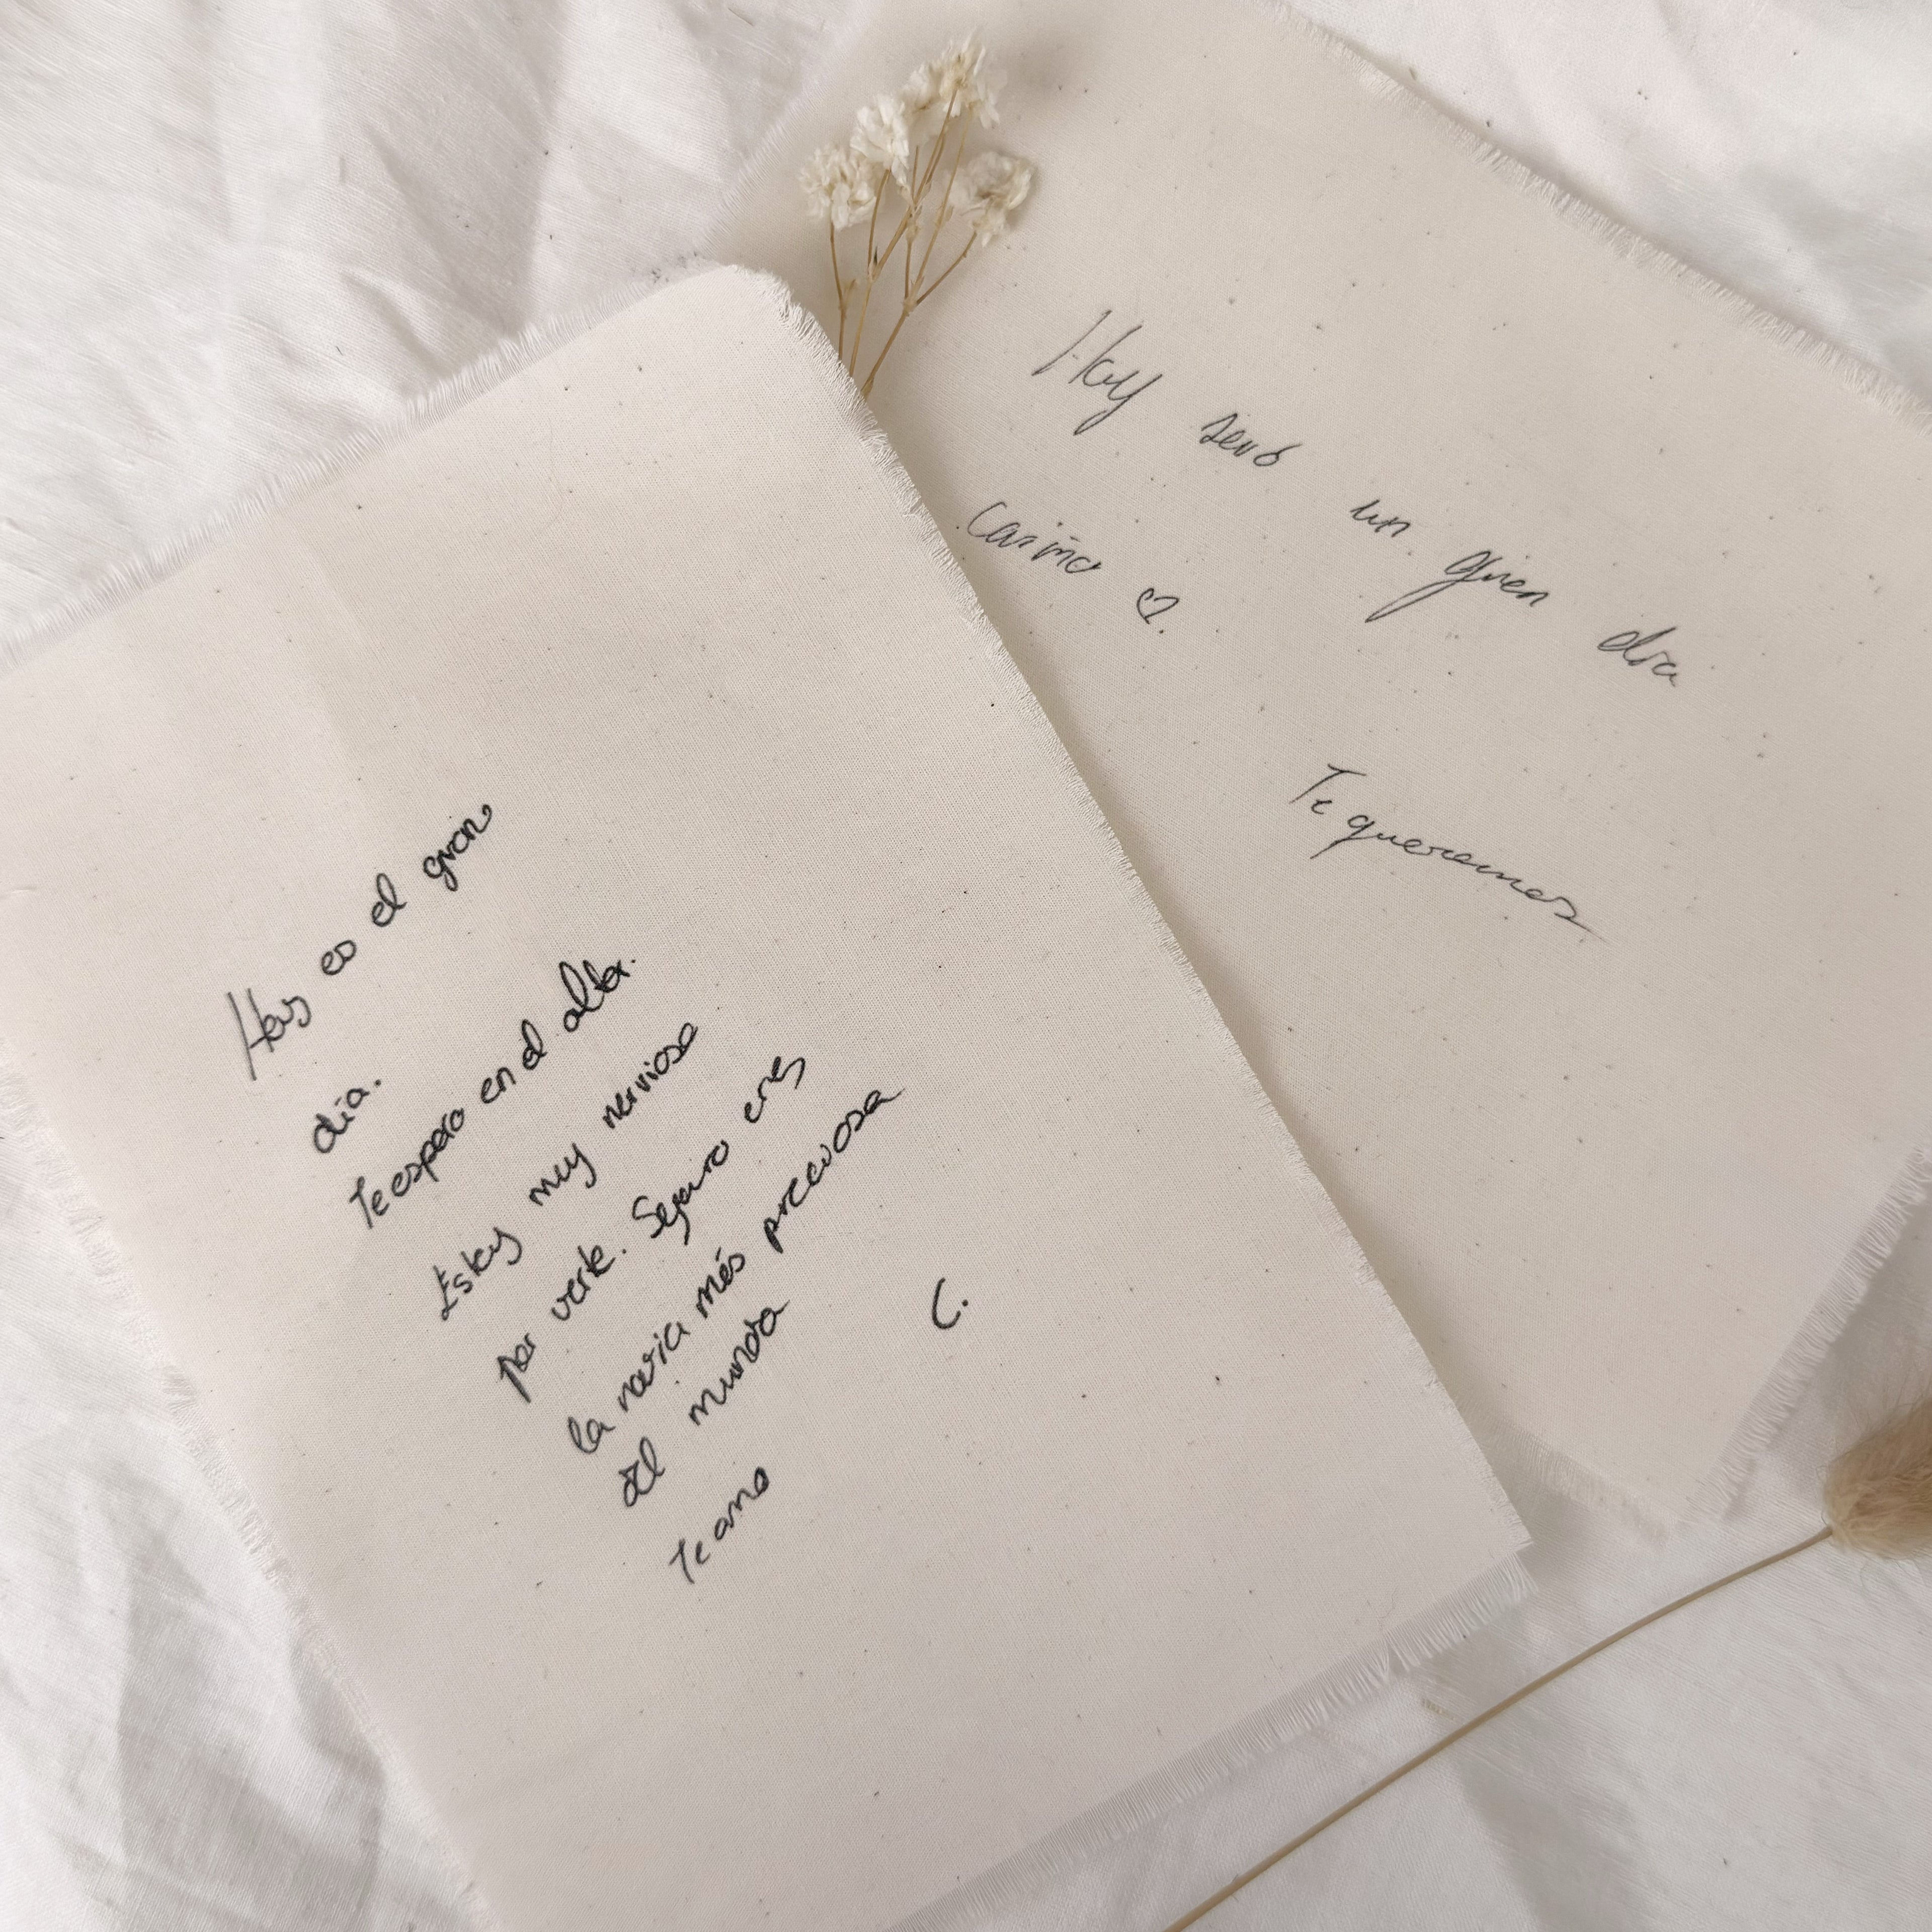 Hoy es el gran
día.
Te espero en el altar.
Estoy muy nervioso
por verte. Seguro eres
la novia más preciosa
del mundo
Te amo
C.
Hoy será un gran día
Cariño ♡.
Te queremos